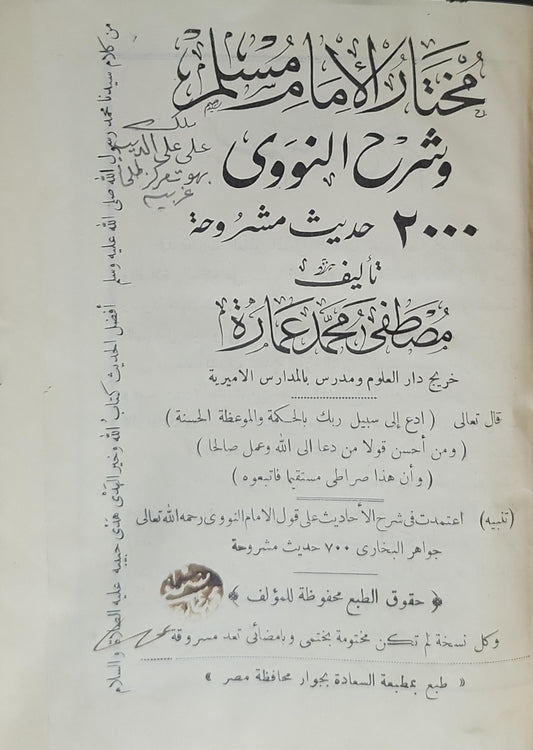 مختار الإمام مسلم
وشرح النووى
٢٠٠٠ حديث مشروحة
تأليف
مصطفى محمد عمارة
خريج دار العلوم ومدرس بالمدارس الأميرية
قال تعالى ( ادع إلى سبيل ربك بالحكمة والموعظة الحسنة )
( ومن أحسن قولا ممن دعا الى الله وعمل صالحا )
( وأن هذا صراطى مستقيما فاتبعوه )
( تنبيه ) اعتمدت فى شرح الأحاديث على قول الامام النووى رحمه الله تعالى
جواهر البخارى ٧٠٠ حديث مشروحة
﴿ حقوق الطبع محفوظة للمؤلف ﴾
وكل نسخة لم تكن مختومة بختمى وبامضائى تعد مسروقة
« طبع بمطبعة السعادة بجوار محافظة مصر »
من كلام سيدنا محمد رسول الله صلى الله عليه وسلم أفضل الحديث كتاب الله وخير الهدى هدى حبيبه عليه الصلاة والسلام
ملك
على على الديب